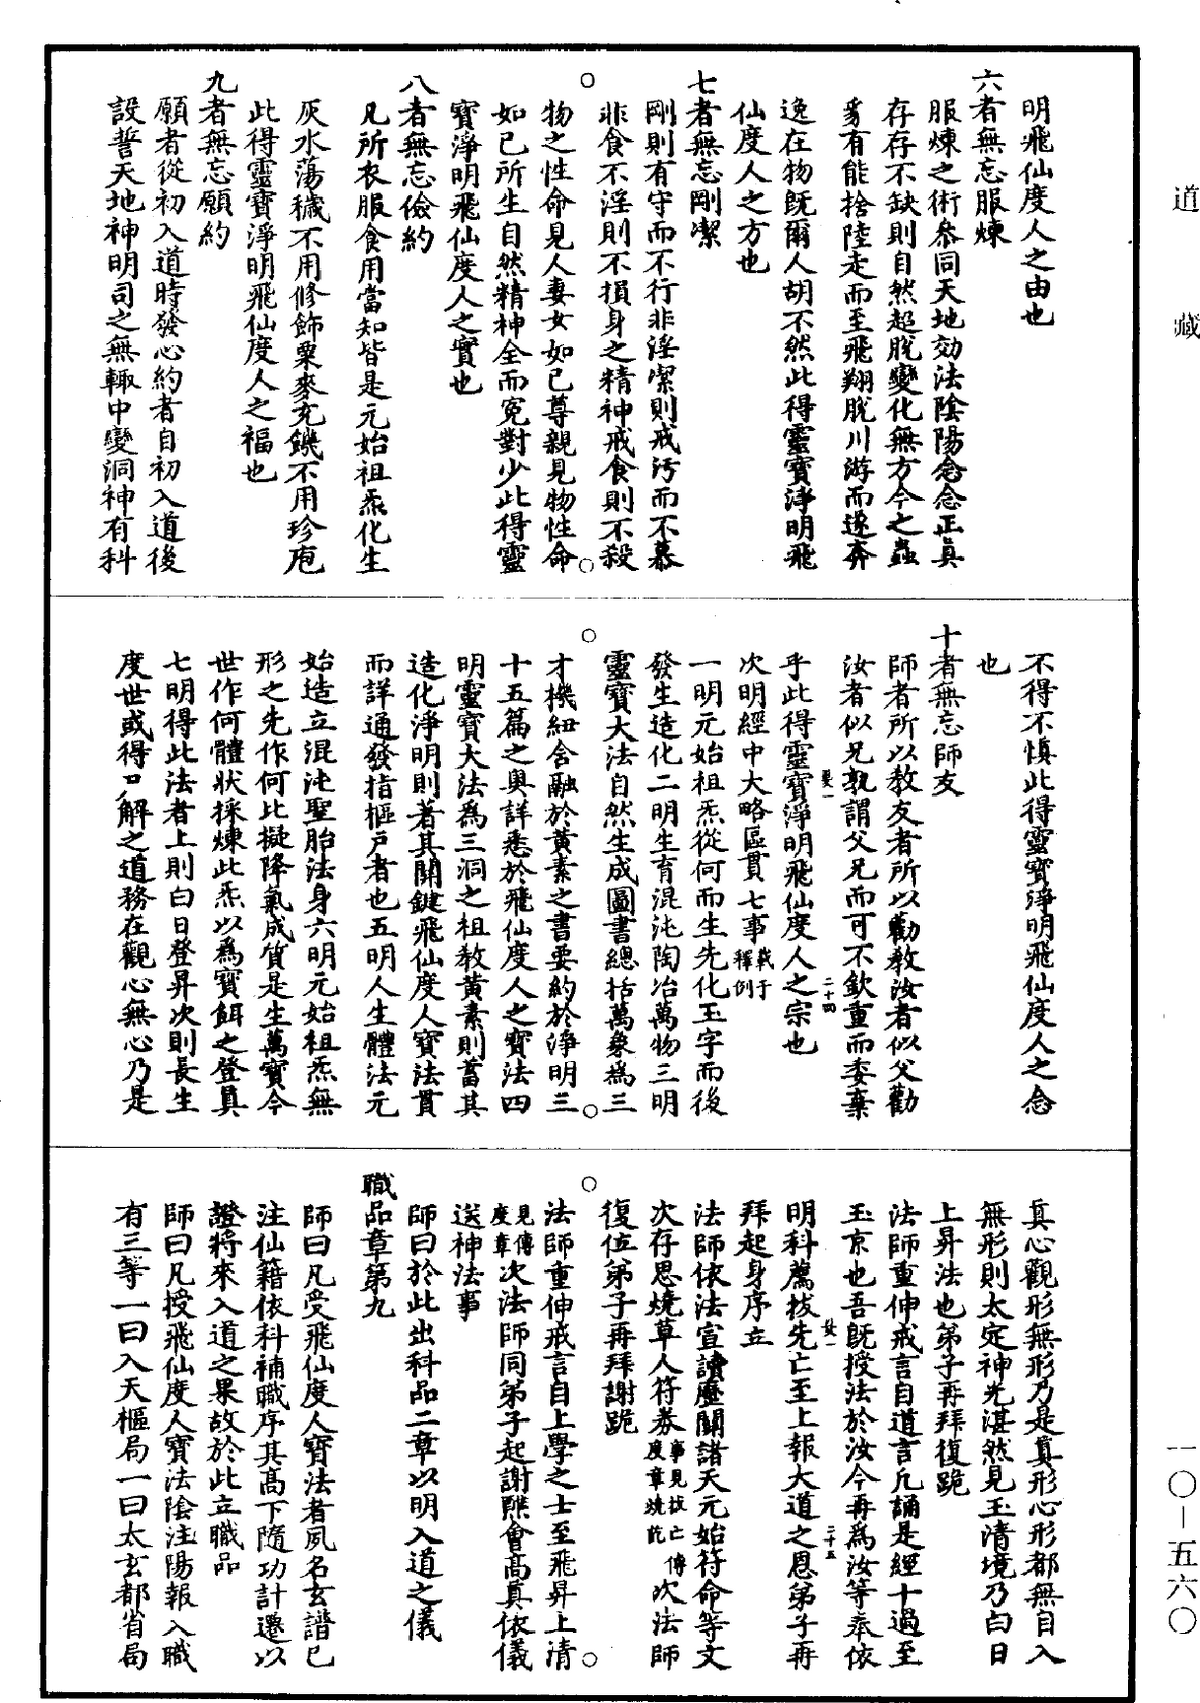 道藏
明飛仙度人之由也
六者無忘服煉
服煉之術叅同天地効法陰陽念念正眞
存存不缺則自然超脫變化無方今之蟲
豸有能捨陸走而至飛翔脫川游而遂奔
逸在物旣爾人胡不然此得靈寶淨明飛
仙度人之方也
七者無忘剛潔
剛則有守而不行非淫潔則戒汚而不慕
非食不淫則不損身之精神戒食則不殺
物之性命見人妻女如己尊親見物性命
如已所生自然精神全而寃對少此得靈
寶淨明飛仙度人之寳也
八者無忘儉約
凡所衣服食用當知皆是元始祖炁化生
灰水蕩穢不用修飾粟麥充饑不用珍庖
此得靈寶淨明飛仙度人之福也
九者無忘願約
願者從初入道時發心約者自初入道後
設誓天地神明司之無輙中變洞神有科
不得不慎此得靈寶淨明飛仙度人之念
也
十者無忘師友
師者所以敎友者所以勸敎汝者似父勸
汝者似兄孰謂父兄而可不欽重而委棄
乎此得靈寶淨明飛仙度人之宗也
二十四
次明經中大略區貫七事載于釋例
一明元始祖炁從何而生先化玉字而後
發生造化二明生育混沌陶冶萬物三明
靈寶大法自然生成圖書總括萬象爲三
才機紐含融於黃素之書要約於淨明三
十五篇之奥詳悉於飛仙度人之寶法四
明靈寶大法爲三洞之祖敎黃素則蓄其
造化淨明則著其關鍵飛仙度人寶法貫
而詳通發指樞戸者也五明人生體法元
始造立混沌聖胎法身六明元始祖炁無
形之先作何比擬降氣成質是生萬寶今
世作何體狀採煉此炁以爲寶餌之登眞
七明得此法者上則白日登昇次則長生
度世或得尸解之道務在觀心無心乃是
眞心觀形無形乃是眞形心形都無自入
無形則太定神光湛然見玉清境乃白日
上昇法也弟子再拜復跪
法師重伸戒言自道言凡誦是經十過至
玉京也吾旣授法於汝今再爲汝等奉依
明科薦拔先亡至上報大道之恩弟子再
二十五
拜起身序立
法師依法宣讀靈關諸天元始符命等文
次存思燒草人符券事見拔亡度章燒訖傳次法師
復位弟子再拜謝跪
法師重伸戒言自上學之士至飛昇上清
見傳度章次法師同弟子起謝醮會高眞依儀
送神法事
師曰於此出科品二章以明入道之儀
職品章第九
師曰凡受飛仙度人寶法者夙名玄譜已
注仙籍依科補職序其高下隨功計遷以
證將來入道之果故於此立職品
師曰凡授飛仙度人寶法陰注陽報入職
有三等一曰入天樞局一曰太玄都省局
一〇—五六〇